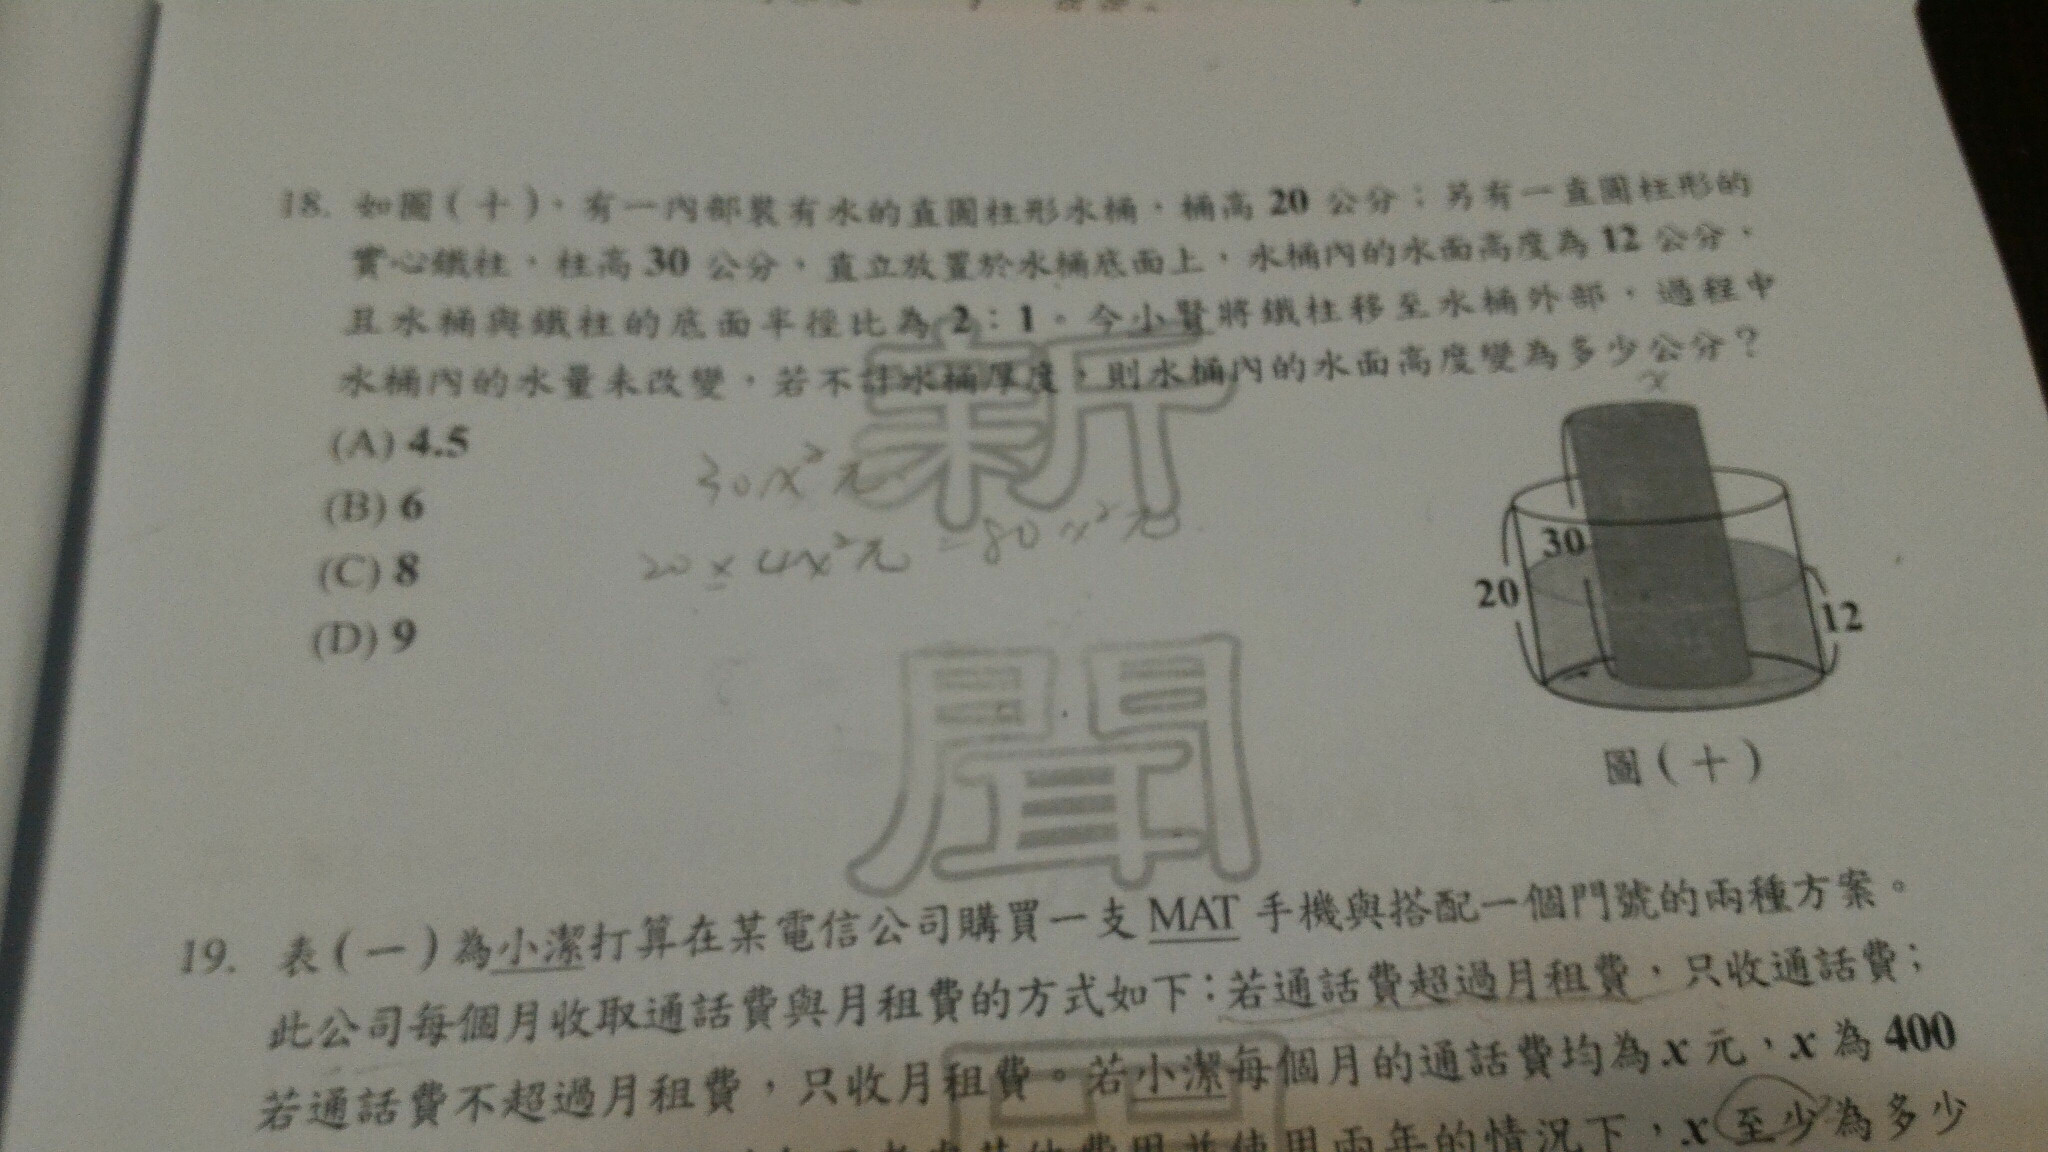 18. 如圖(十)，有一內部裝有水的直圓柱形水桶，桶高 20 公分；另有一直圓柱形的
實心鐵柱，柱高 30 公分，直立放置於水桶底面上，水桶內的水面高度為 12 公分，
且水桶與鐵柱的底面半徑比為 2：1。今小賢將鐵柱移至水桶外部，過程中
水桶內的水量未改變，若不計水桶厚度，則水桶內的水面高度變為多少公分？
x
(A) 4.5
(B) 6
(C) 8
(D) 9
30x²π
20 × 4x²π = 80x²π
30
20
12
圖(十)
新
聞
19. 表(一)為小潔打算在某電信公司購買一支 MAT 手機與搭配一個門號的兩種方案。
此公司每個月收取通話費與月租費的方式如下：若通話費超過月租費，只收通話費；
若通話費不超過月租費，只收月租費。若小潔每個月的通話費均為 x 元，x 為 400
用並使用兩年的情況下，x 至少為多少